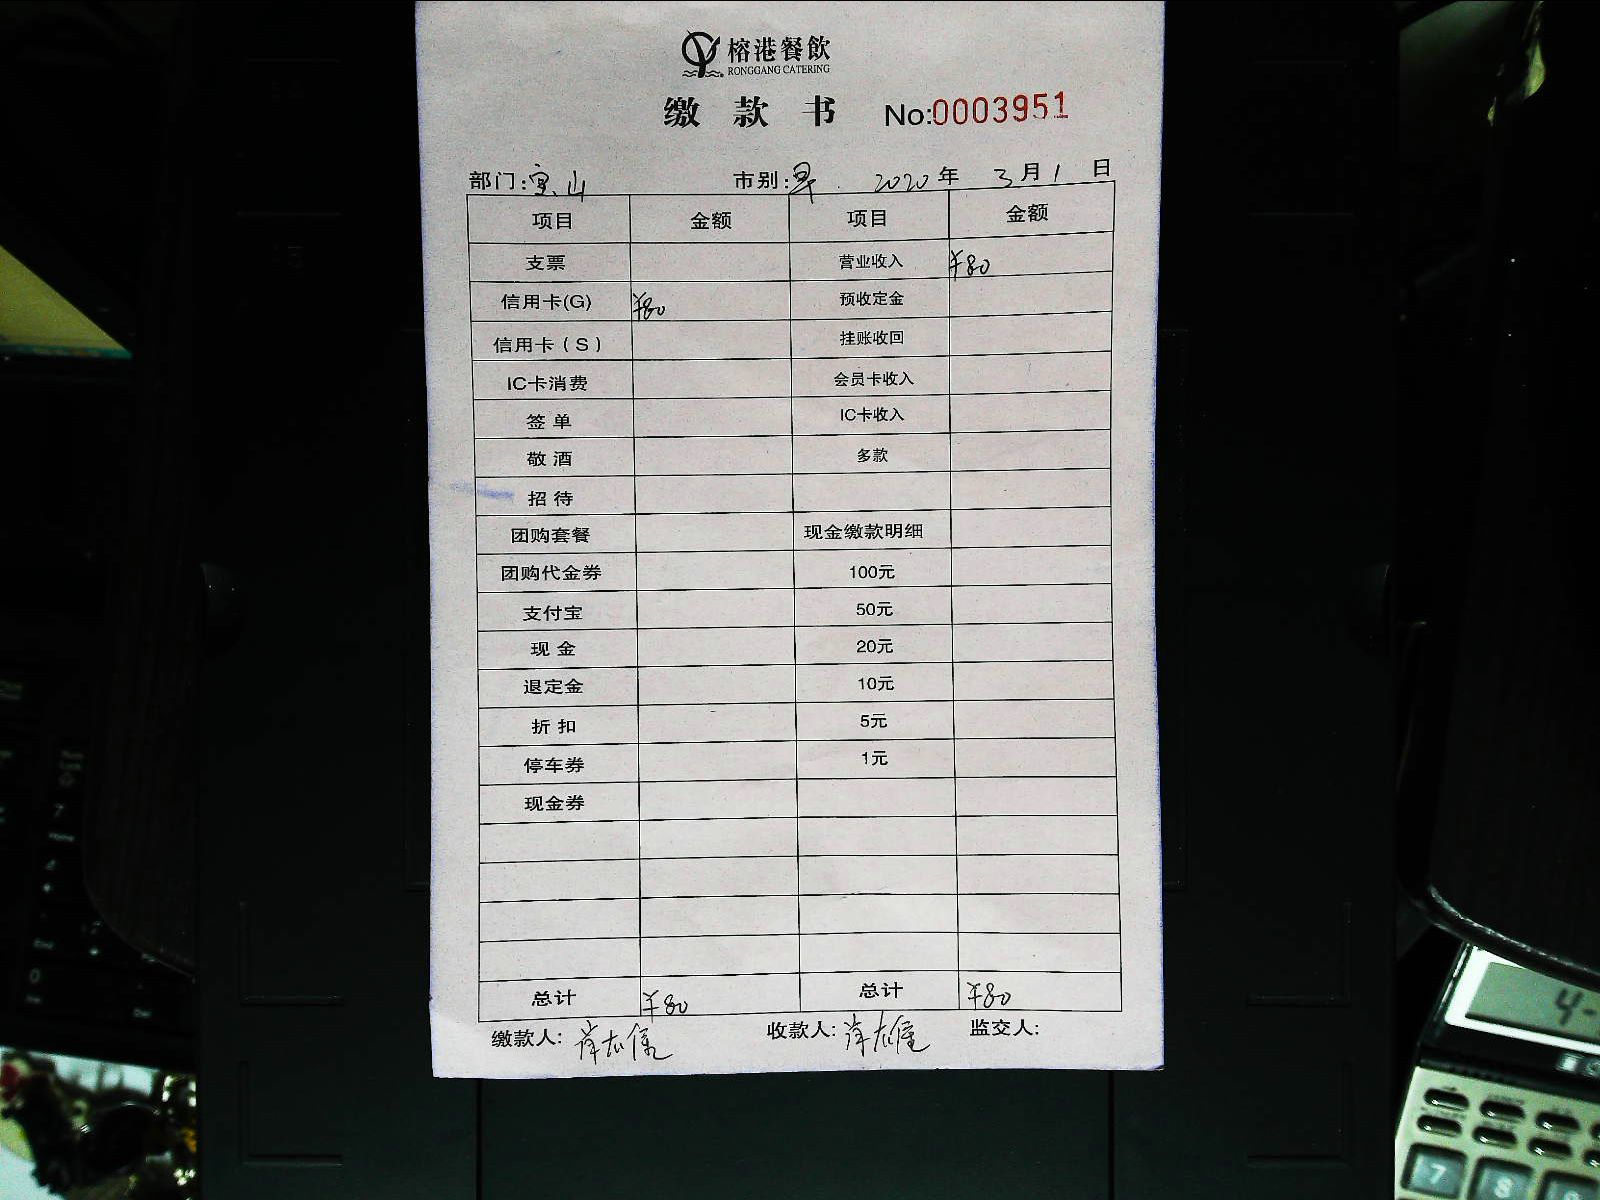 榕港餐飲
RONGGANG CATERING
缴款书 No:0003951
部门:宝山 市别:早 2020年3月1日
项目 金额 项目 金额
支票 营业收入 ¥80
信用卡(G) ¥80 预收定金
信用卡(S) 挂账收回
IC卡消费 会员卡收入
签单 IC卡收入
敬酒 多款
招待
团购套餐 现金缴款明细
团购代金券 100元
支付宝 50元
现金 20元
退定金 10元
折扣 5元
停车券 1元
现金券
总计 ¥80 总计 ¥80
缴款人: 收款人: 监交人: